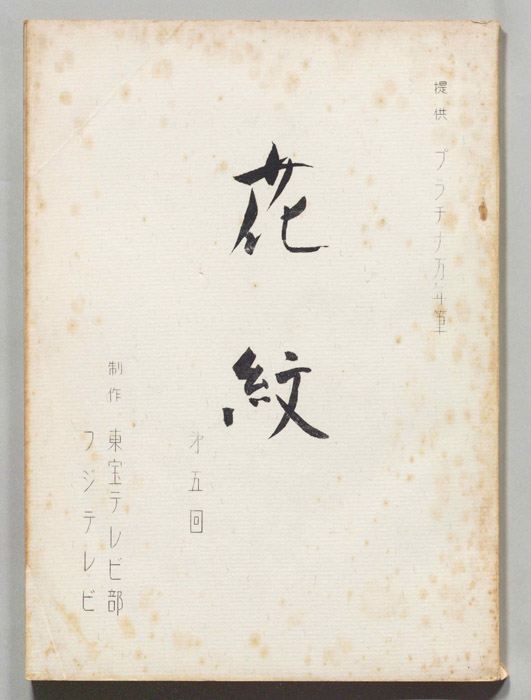 提供 プラチナ万年筆
花紋
才五回
制作 東宝テレビ部
フジテレビ